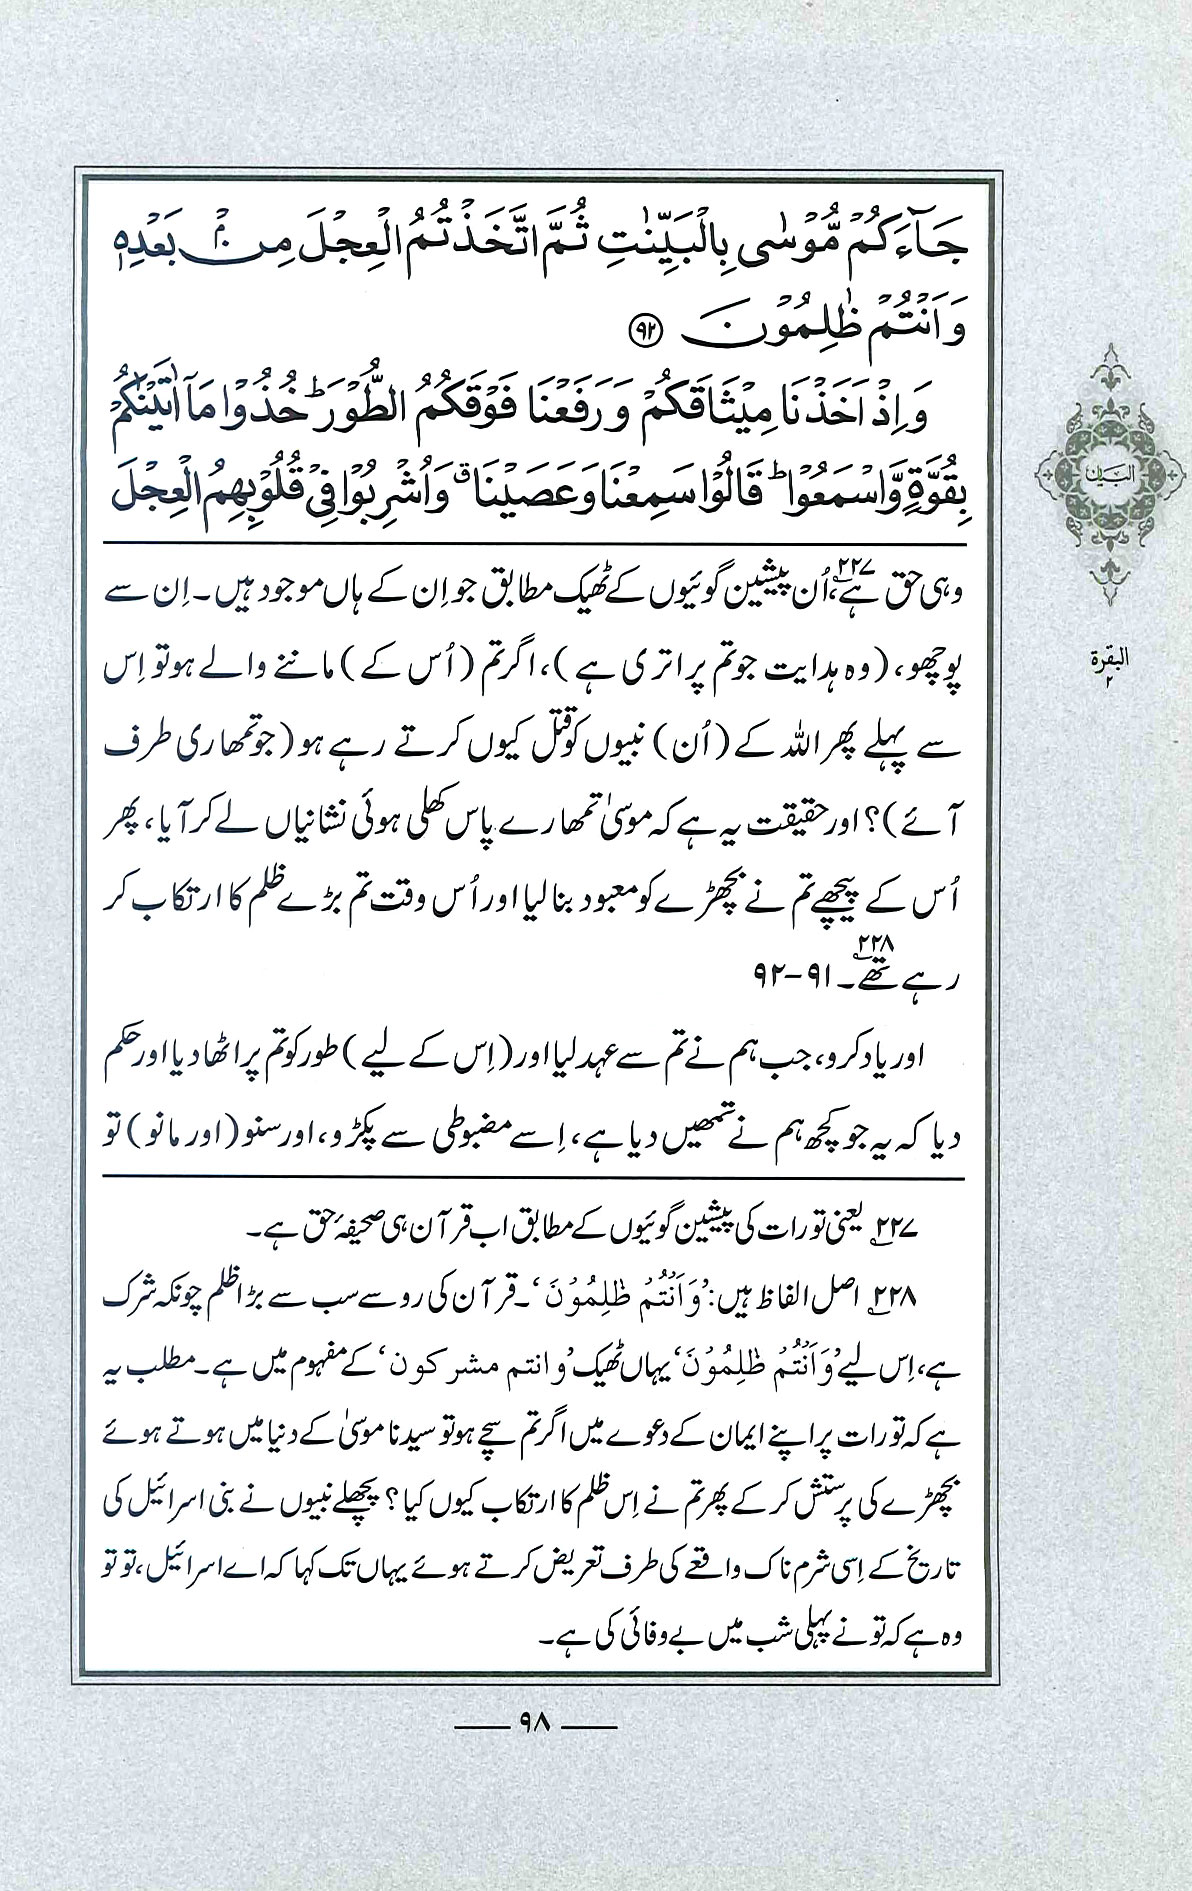 جَآءَكُمْ مُّوْسٰى بِالْبَيِّنٰتِ ثُمَّ اتَّخَذْتُمُ الْعِجْلَ مِنْۢ بَعْدِهٖ
وَاَنْتُمْ ظٰلِمُوْنَ ﴿۹۲﴾
وَاِذْ اَخَذْنَا مِيْثَاقَكُمْ وَرَفَعْنَا فَوْقَكُمُ الطُّوْرَ ؕ خُذُوْا مَآ اٰتَيْنٰكُمْ
بِقُوَّةٍ وَّاسْمَعُوْا ؕ قَالُوْا سَمِعْنَا وَعَصَيْنَا ۗ وَاُشْرِبُوْا فِيْ قُلُوْبِهِمُ الْعِجْلَ
وہی حق ہے۲۲۷، اُن پیشین گوئیوں کے ٹھیک مطابق جو اِن کے ہاں موجود ہیں۔ اِن سے
پوچھو، (وہ ہدایت جو تم پر اتری ہے)، اگر تم (اُس کے) ماننے والے ہو تو اِس
سے پہلے پھر اللہ کے (اُن) نبیوں کو قتل کیوں کرتے رہے ہو (جو تمھاری طرف
آئے)؟ اور حقیقت یہ ہے کہ موسیٰ تمھارے پاس کھلی ہوئی نشانیاں لے کر آیا، پھر
اُس کے پیچھے تم نے بچھڑے کو معبود بنا لیا اور اُس وقت تم بڑے ظلم کا ارتکاب کر
رہے تھے۲۲۸۔ ۹۱-۹۲
اور یاد کرو، جب ہم نے تم سے عہد لیا اور (اِس کے لیے) طور کو تم پر اٹھا دیا اور حکم
دیا کہ یہ جو کچھ ہم نے تمھیں دیا ہے، اِسے مضبوطی سے پکڑو، اور سنو (اور مانو) تو
۲۲۷ یعنی تورات کی پیشین گوئیوں کے مطابق اب قرآن ہی صحیفۂ حق ہے۔
۲۲۸ اصل الفاظ ہیں: ’وَاَنْتُمْ ظٰلِمُوْنَ‘۔ قرآن کی رو سے سب سے بڑا ظلم چونکہ شرک
ہے، اِس لیے ’وَاَنْتُمْ ظٰلِمُوْنَ‘ یہاں ٹھیک ’وانتم مشرکون‘ کے مفہوم میں ہے۔ مطلب یہ
ہے کہ تورات پر اپنے ایمان کے دعوے میں اگر تم سچے ہو تو سیدنا موسیٰ کے دنیا میں ہوتے ہوئے
بچھڑے کی پرستش کر کے پھر تم نے اِس ظلم کا ارتکاب کیوں کیا؟ پچھلے نبیوں نے بنی اسرائیل کی
تاریخ کے اِسی شرم ناک واقعے کی طرف تعریض کرتے ہوئے یہاں تک کہا کہ اے اسرائیل، تو تو
وہ ہے کہ تو نے پہلی شب میں بے وفائی کی ہے۔
البیان
البقرة
۲
۹۸